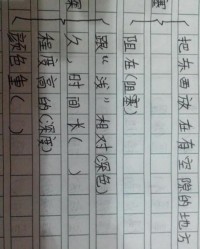 塞
把东西放在有空隙的地方
阻在(阻塞)
深
跟“浅”相对(深色)
久,时间长( )
程度高的(深度)
颜色重( )